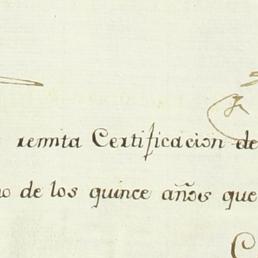 remita Certificacion de
o de los quince años que
C